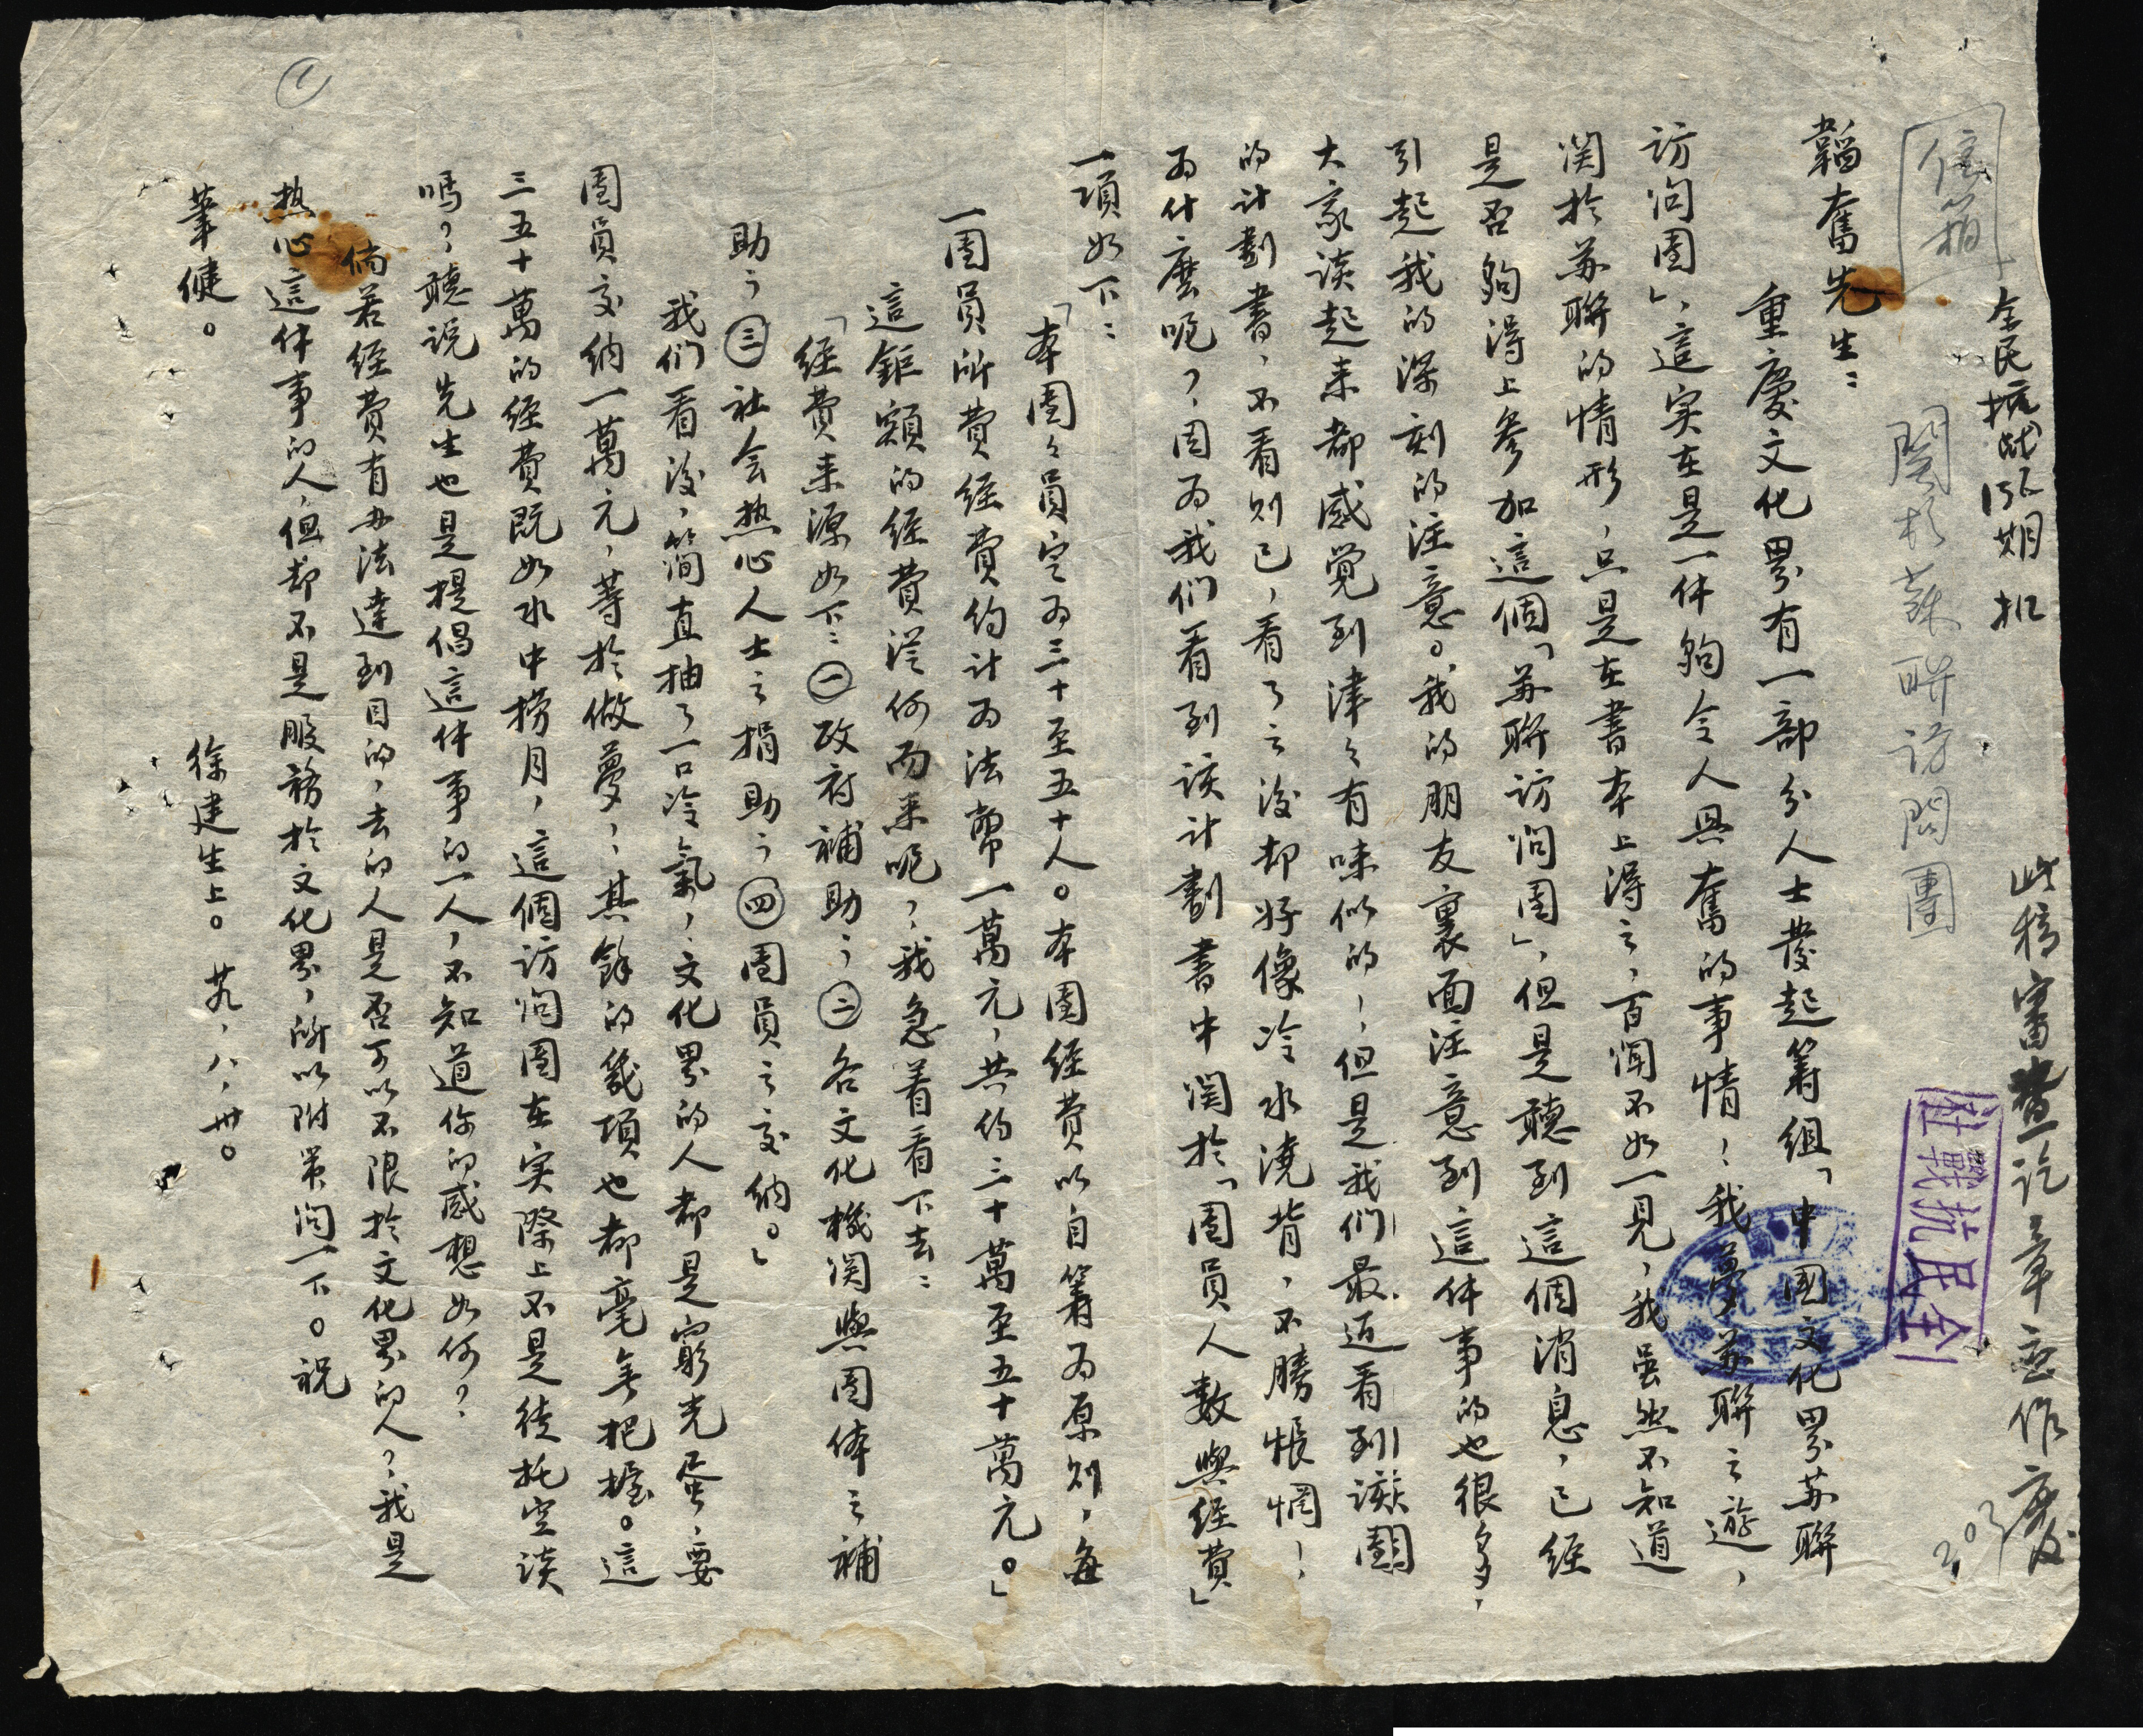 全民抗战135期扣
此稿審查訖章應作廢
203
信箱
關於蘇聯訪問團
全民抗戰社
韜奮先生：
重慶文化界有一部分人士發起籌組「中國文化界苏聯
訪问团」，這实在是一件夠令人興奮的事情！我夢苏聯之遊，
関於苏聯的情形，只是在書本上得之，百闻不如一見，我虽然不知道
是否夠得上參加這個「苏聯訪问团」，但是聽到這個消息，已經
引起我的深刻的注意。我的朋友裏面注意到這件事的也很多，
大家談起来都感觉到津々有味似的，但是我们最近看到該團
的計劃書，不看则已，看了之後却好像冷水澆背，不勝悵惘！
为什麽呢？因为我们看到該計劃書中関於「团員人數與經費」
一項如下：
「本團々員定为三十至五十人。本團經費以自籌为原则，每
一团員所費經費約计为法幣一萬元，共約三十萬至五十萬元。」
這鉅額的經費從何而来呢？我急着看下去：
「經費来源如下：㊀政府補助；㊁各文化機関與团体之補
助；㊂社会热心人士之捐助；㊃团員之交納。」
我们看後，简直抽了一口冷氣，文化界的人都是窮光蛋，要
团員交纳一萬元，等於做夢；其餘的幾項也都毫無把握。這
三五十萬的經費既如水中撈月，這個訪问团在实際上不是徒托空談
嗎？聽说先生也是提倡這件事的一人，不知道你的感想如何？
倘若經費有办法達到目的，去的人是否可以不限於文化界的人？我是
热心這件事的人，但却不是服務於文化界，所以附筆问一下。祝
筆健。
徐建生上。 廿九，八，卅。
1